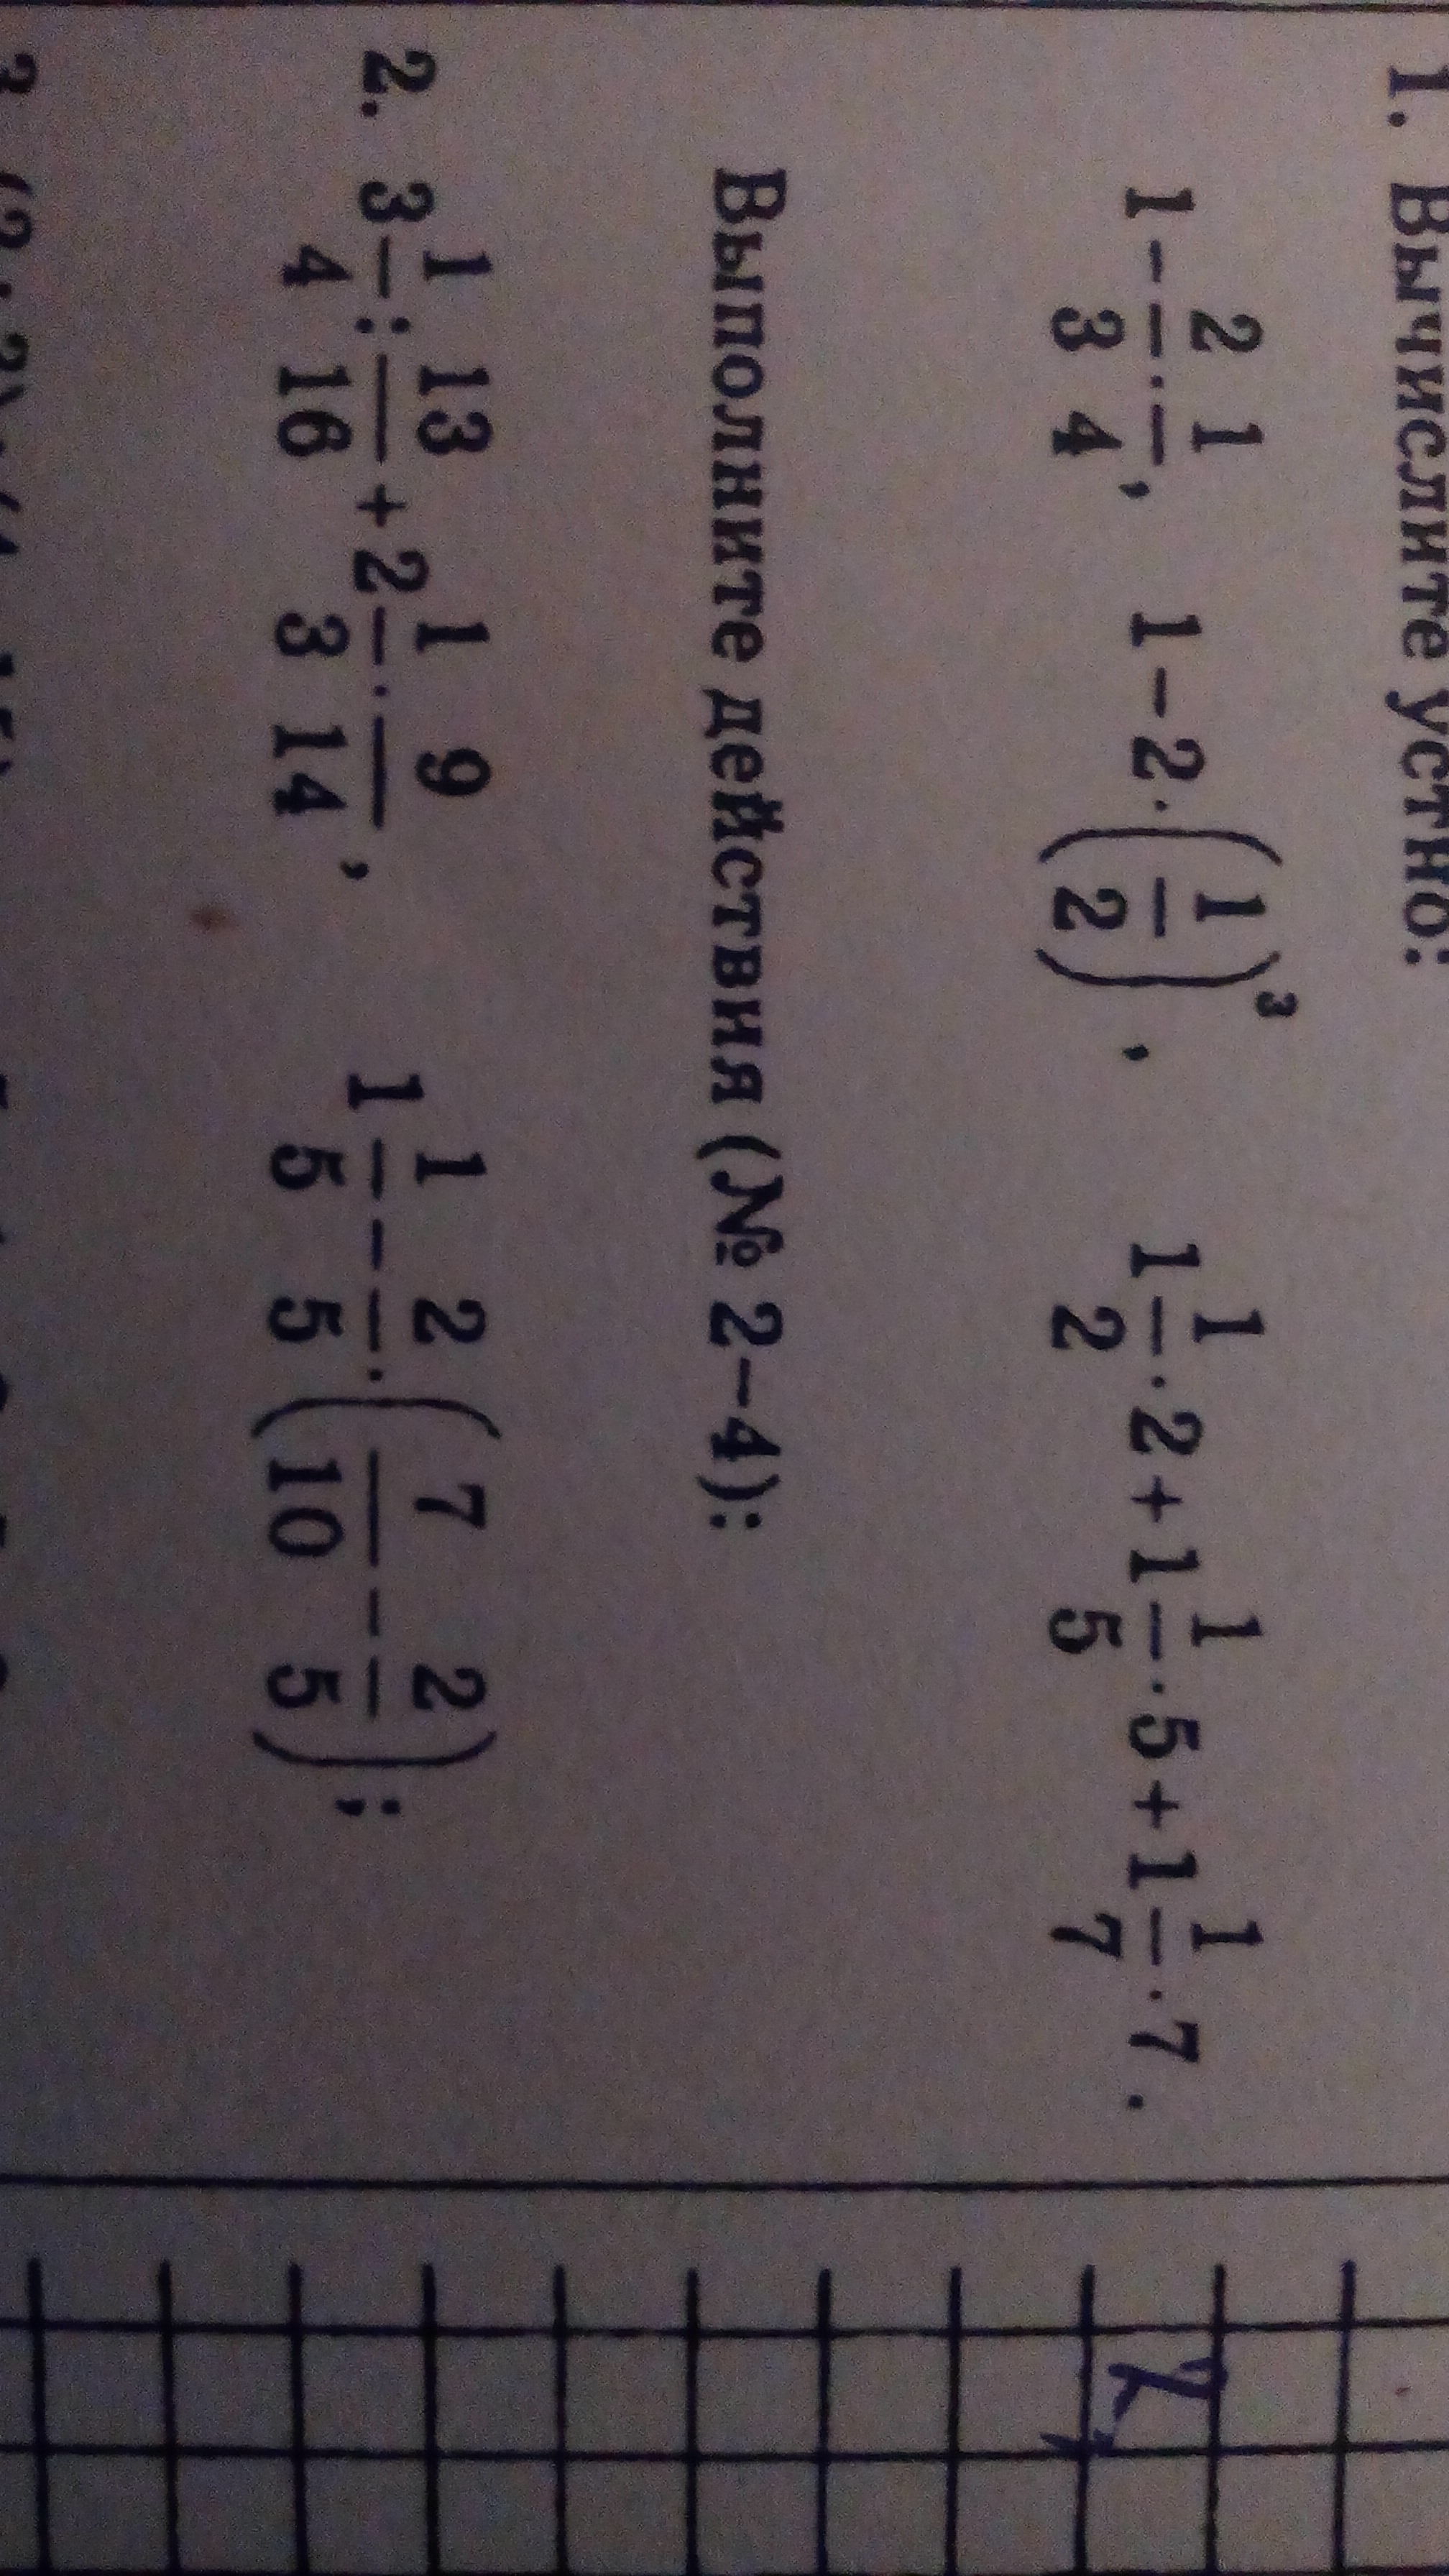 1. Вычислите устно:
1 − 2/3 · 1/4, 1 − 2 · (1/2)³, 1 1/2 · 2 + 1 1/5 · 5 + 1 1/7 · 7.
Выполните действия (№ 2−4):
2. 3 1/4 : 13/16 + 2 1/3 · 9/14, 1 1/5 − 2/5 · (7/10 − 2/5);